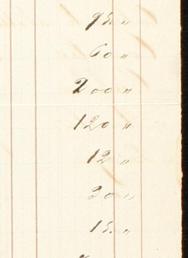 95 "
60 "
200 "
120 "
12 "
20 "
15 "